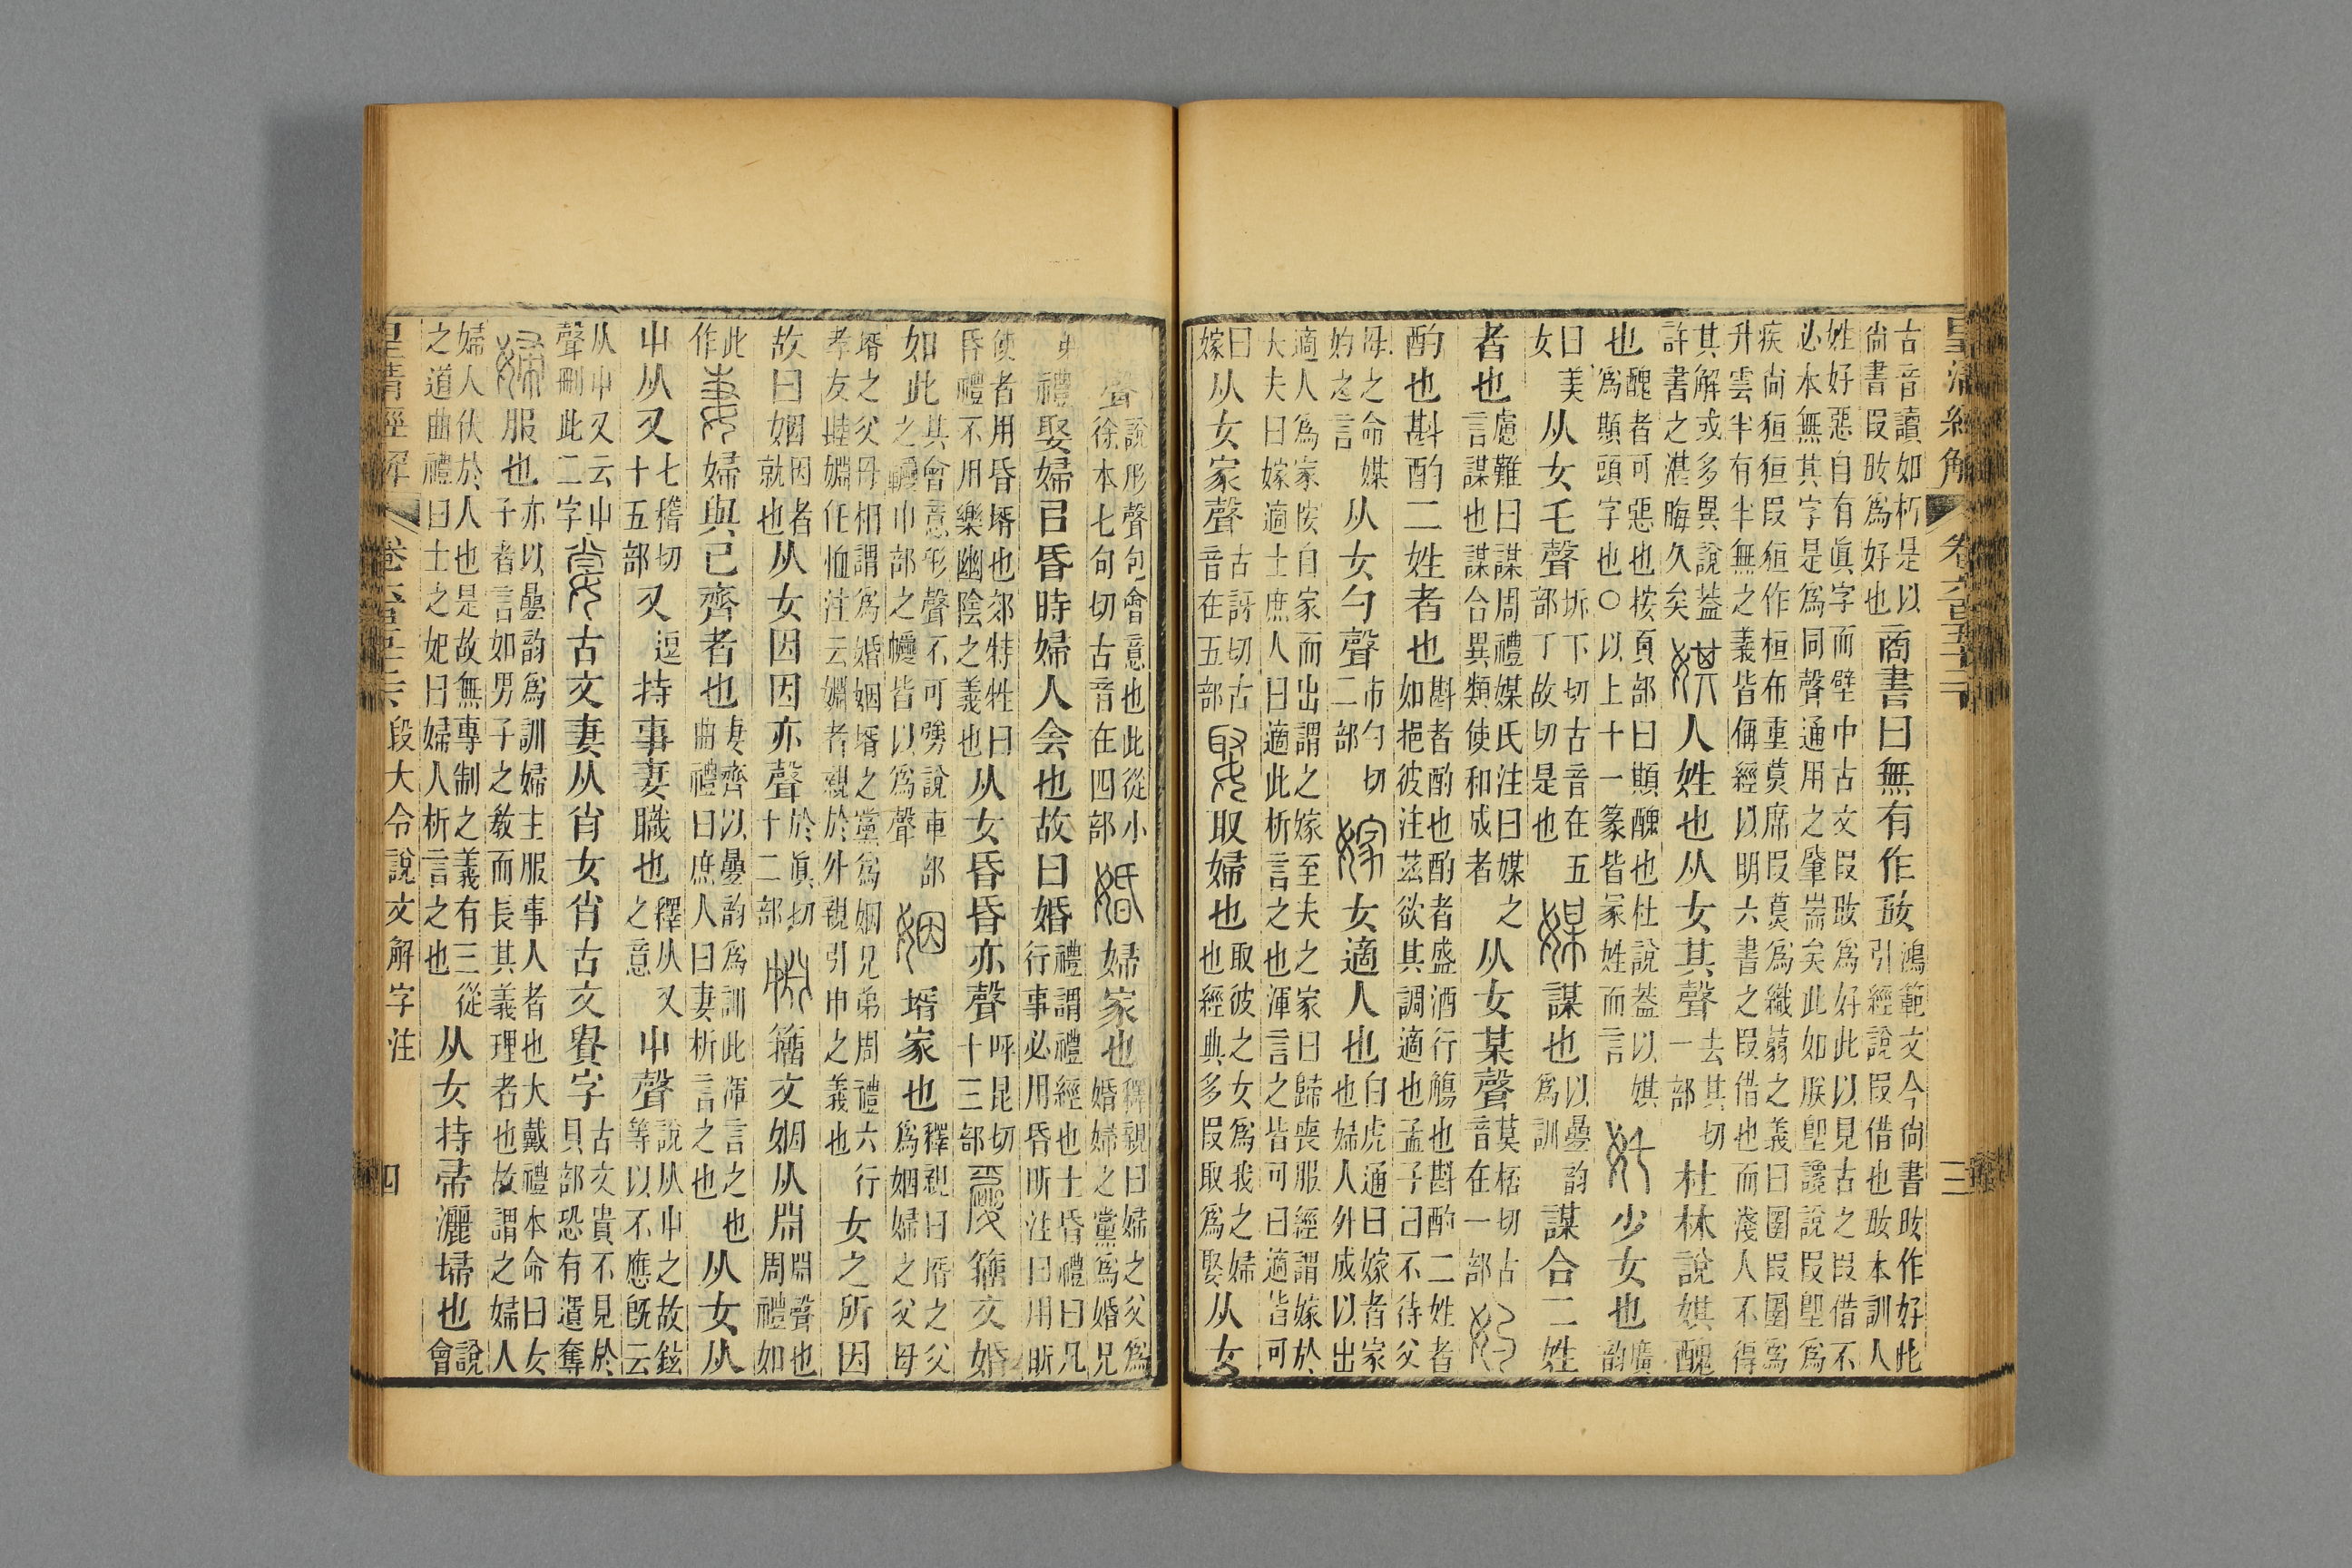 皇清經解 卷六百五十二 三
古音讀如朽是以
尙書叚㚼爲好也
商書曰無有作㚼
鴻範文今尙書㚼作好此
引經說叚借也㚼本訓人
姓好惡自有眞字而壁中古文叚㚼爲好此以見古之叚借不
必本無其字是爲同聲通用之肈耑矣此如朕卽讒說叚卽爲
疾尙狟狟叚狟作桓布重莫席叚莫爲織蒻之義曰圛叚圛爲
升雲半有半無之義皆偁經以明六書之叚借也而淺人不得
其解或多異說葢
許書之湛晦久矣
娸人姓也从女其聲
去其切
一部
杜林說娸醜
也
醜者可惡也按頁部曰䫏醜也杜說葢以娸
爲䫏頭字也○以上十一篆皆冡姓而言
奼少女也
廣
韵
曰美
女
从女乇聲
坼下切古音在五
部丁故切是也
媒謀也
以疊韵
爲訓
謀合二姓
者也
慮難曰謀周禮媒氏注曰媒之
言謀也謀合異類使和成者
从女某聲
莫桮切古
音在一部
妁
酌也斟酌二姓者也
斟者酌也酌者盛酒行觴也斟酌二姓者
如挹彼注茲欲其調適也孟子曰不待父
母之命媒
妁之言
从女勺聲
市勺切
二部
嫁女適人也
白虎通曰嫁者家
也婦人外成以出
適人爲家按自家而出謂之嫁至夫之家曰歸喪服經謂嫁於
大夫曰嫁適士庶人曰適此析言之也渾言之皆可曰適皆可
曰
嫁
从女家聲
古訝切古
音在五部
娶取婦也
取彼之女爲我之婦
也經典多叚取爲娶
从女
聲
說形聲包會意也此從小
徐本七句切古音在四部
婚婦家也
釋親曰婦之父爲
婚婦之黨爲婚兄
弟
禮娶婦㠯昏時婦人会也故曰婚
禮謂禮經也士昏禮曰凡
行事必用昏昕注曰用昕
使者用昏壻也郊特牲曰
昏禮不用樂幽陰之義也
从女昏昏亦聲
呼昆切
十三部
籒文婚
如此
其會意形聲不可䝿說車部
之𨏙巾部之幭皆以爲聲
姻壻家也
釋親曰壻之父
爲姻婦之父母
壻之父母相謂爲婚姻壻之黨爲姻兄弟周禮六行
孝友睦婣任恤注云婣者親於外親引申之義也
女之所因
故曰姻
因者
就也
从女因因亦聲
於眞切
十二部
婣籒文姻从𣶒
𣶒聲也
周禮如
此
作
妻婦與己齊者也
妻齊以疊韵爲訓此渾言之也
曲禮曰庶人曰妻析言之也
从女从
屮从又
七稽切
十五部
又
逗
持事妻職也
釋从又
之意
屮聲
說从屮之故鉉
等以不應旣云
从屮又云屮
聲刪此二字
古文妻从𡭴女𡭴古文貴字
古文貴不見於
貝部恐有遺奪
婦服也
亦以疊韵爲訓婦主服事人者也大戴禮本命曰女
子者言如男子之教而長其義理者也故謂之婦人
婦人伏於人也是故無專制之義有三從
之道曲禮曰士之妃曰婦人析言之也
从女持帚灑埽也
說
會
皇清經解 卷六百五十二 段大令說文解字注 四